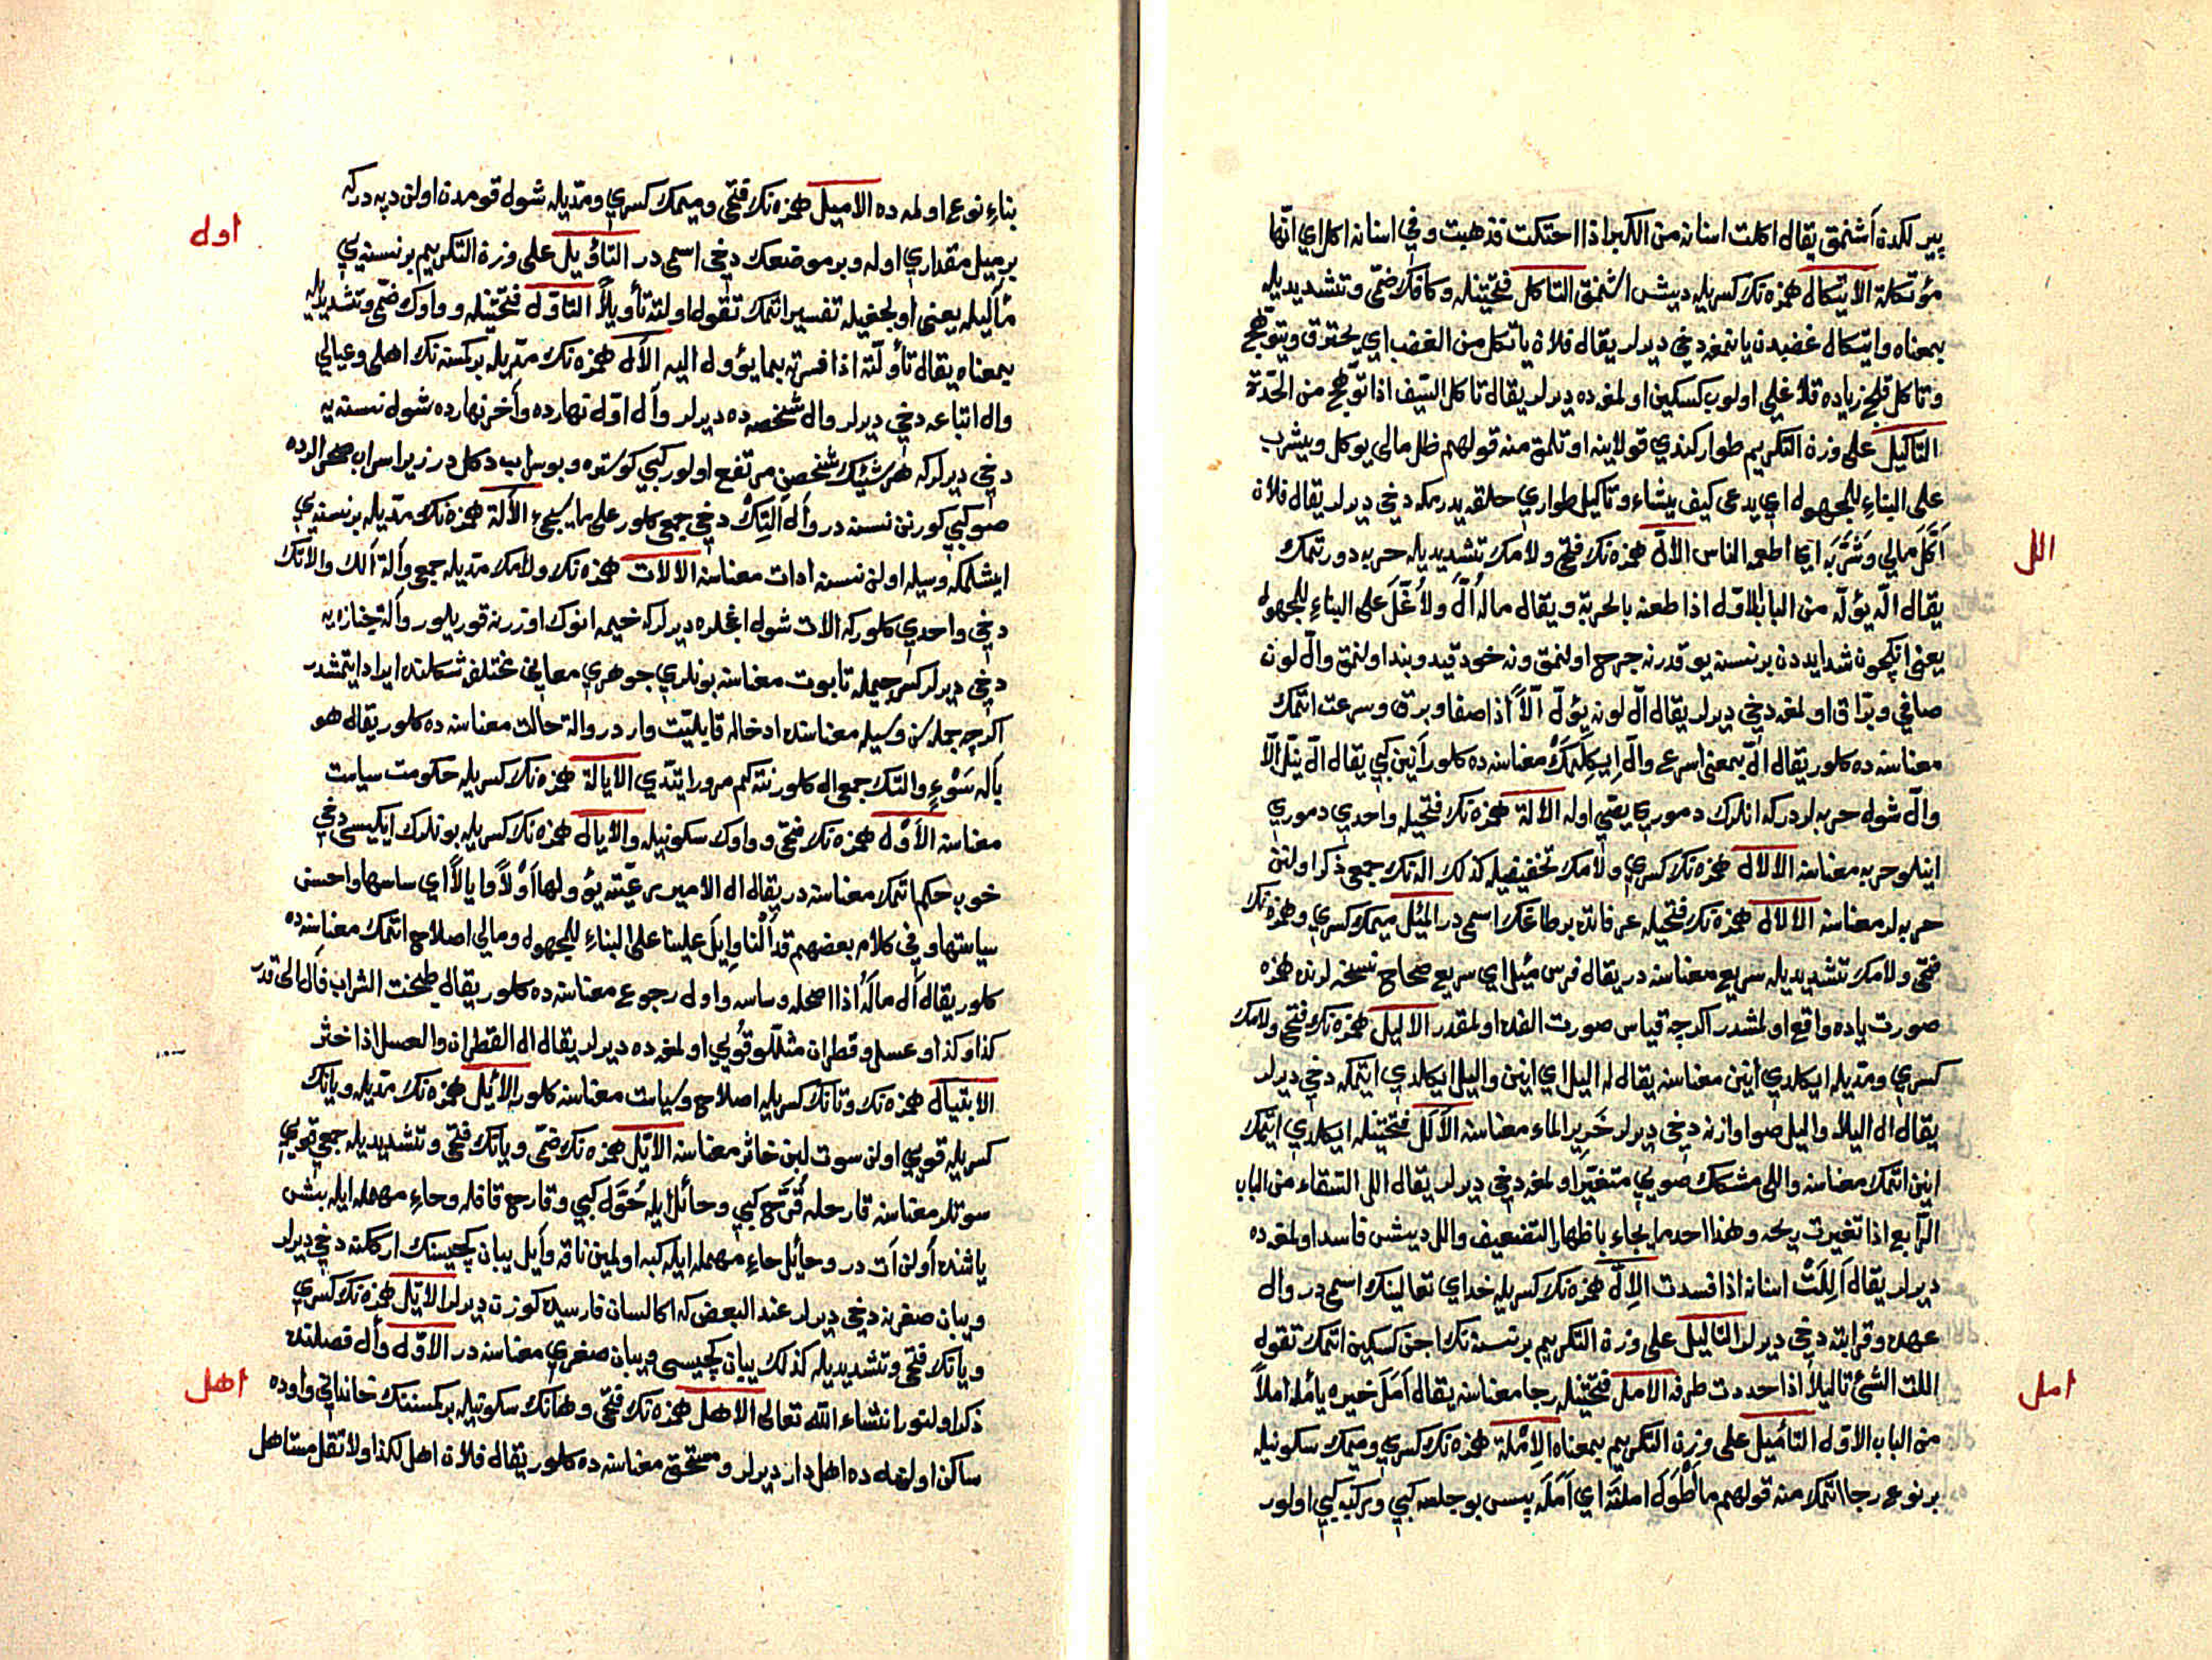 پيرلكدن أشنمق يقال اكلت اسنانه من الكبر اذا احتكت فذهبت وفي اسنانه اكل اي انها
مؤتكلة الايتكال همزه نك كسريله ديش اشنمق التاكل فتحتينله وكافك ضمى وتشديديله
بمعناه وايتكال غضبدن يانمغه دخي ديرلر يقال فلان ياتكل من الغضب اي يحترق ويتوهج
وتاكل قلج زياده قلاغلى اولوب كسكين اولمغه ده ديرلر يقال تاكل السيف اذا توهج من الحدة
التاكيل على وزن التكريم طوار كندي قولاينه اوتلمق منه قولهم ظل مالي يوكل ويشرب
على البناء للمجهول اي يدعى كيف يشاء وتاكيل طواري حلقه يدرمكه دخي ديرلر يقال فلان
أكّل مالي وشرّبه اي اطعمه الناس الألّ همزه نك فتحى ولامك تشديديله حربه دورتمك
الل
يقال الّه يؤلّه من الباب الاول اذا طعنه بالحربة ويقال ماله اُلّ وغُلّ على البناء للمجهول
يعني انكچون شدايددن برنسنه يوقدرنه جرح اولنمق ونه خود قيد وبند اولنمق والّ لون
صافي وبرّاق اولمغه دخي ديرلر يقال الّ لونه يؤلّ ألّاً اذا صفا وبرق وسرعت اتمك
معناسنه ده كلور يقال الّ بمعنى اسرع والّ ايكلمك معناسنه ده كلور أنين كبي يقال الّ يئلّ الّا
والّ شول حربه لردركه انلرك دموري يصّي اوله الالّة همزه نك فتحيله واحدي دموري
اينلو حربه معناسنه الالال همزه نك كسري ولامك تخفيفيله كذلك اله نك جمعى ذكر اولنن
حربه لر معناسنه الالال همزه نك فتحيله عرفاتده برطاغك اسمى در المئلّ ميمك كسري وهمزه نك
فتحى ولامك تشديديله سريع معناسنه در يقال فرس مئلّ اي سريع صحاح نسخه لرنده همزه
صورت ياده واقع اولمشدر اكرچه قياس صورت الفده اولمقدر الاليل همزه نك فتحى ولامك
كسري ومديله ايكلدي أنين معناسنه يقال له اليل اي انين واليل ايكلدي ايتمكه دخي ديرلر
يقال ال اليلا واليل صو اوازنه دخي ديرلر خرير الماء معناسنه الألل فتحتينله ايكلدي ايتمك
انين اتمك معناسنه واللى مشكك صويي متغيّر اولمغه دخي ديرلر يقال الل السقاء من الباب
الرابع اذا تغيرت ريحه وهذا احد ما جاء باظهار التضعيف والل ديشش فاسد اولمغه ده
ديرلر يقال ألِلَتْ اسنانه اذا فسدت الإلّ همزه نك كسريله خداي تعالينك اسمى در وال
عهده وقرابته دخي ديرلر التاليل على وزن التكريم برنسنه نك اوجن كسكين اتمك تقول
اللت الشئ تاليلا اذا حددت طرفه الامل فتحتينله رجا معناسنه يقال أمل خيره يأمله املاً
امل
من الباب الاول التأميل على وزن التكريم بمعناه الإملة همزه نك كسري وميمك سكونيله
برنوع رجا اتمك منه قولهم ما أطول املته اي أمله پس بو جلسه كبي وركبه كبي اولور
بناء نوع اولمه ده الاميل همزه نك فتحى وميمك كسري ومديله شول قومدن اولن ديه دركه
برميل مقداري اوله وبر موضعك دخي اسمى در التاويل على وزن التكريم برنسنه يي
اول
مأليله يعني اوجغيله تفسير اتمك تقول اولته تأويلاً التاوّل فتحتينله وواوك ضمى وتشديديله
بمعناه يقال تأولته اذا فسرته بما يؤول اليه الآل همزه نك مديله بركسنه نك اهلى وعيالي
وال اتباعه دخي ديرلر وال شخصه ده ديرلر وآل اوّل نهارده وأخر نهارده شول نسنه يه
دخي ديرلركه هر شيئك شخصن مرتفع اولور كبي كوستره وبو سراب دكلدر زيرا سراب صحرالرده
صو كبي كورنن نسنه در وآل آلتك دخي جمعى كلور على ما سيجئ الآلة همزه نك مديله برنسنه يي
ايشلمكه وسيله اولن نسنه ادات معناسنه الآلات همزه نك ولامك مديله جمعى وآلة آلك والآتك
دخي واحدي كلوركه الات شول اغجلره ديرلركه خيمه انوك اوزرنه قوريلور وآلة جنازه يه
دخي ديرلر كسر جيمله تابوت معناسنه بونلري جوهري معاني مختلفه شكلنده ايراد ايتمشدر
اكرچه جمله سن وسيله معناسنده ادخاله قابليت واردر والة حالت معناسنه ده كلور يقال هو
بآلة سوءٍ والتك جمعى ال كلور نته كم مرورا يتدي الايالة همزه نك كسريله حكومت سياست
معناسنه الأوْل همزه نك فتحى وواوك سكونيله والأيال همزه نك كسريله بونلرك ايكيسى دخي
خوب حكم اتمك معناسنه در يقال ال الامير رعيته يؤولها أوْلاً وايالاً اي ساسها واحسن
سياستها وفي كلام بعضهم قد ألنا وإيل علينا على البناء للمجهول ومالي اصلاح اتمك معناسنه ده
كلور يقال آل ماله اذا اصلحه وساسه واول رجوع معناسنه ده كلور يقال طبخت الشراب فآل الى قدر
كذا وكذا وعسل وقطران مثللو قويي اولمغه ده ديرلر يقال ال القطران والعسل اذا خثر
الايتيال همزه نك وتانك كسريله اصلاح وسياست معناسنه كلور الأيل همزه نك مديله ويانك
كسريله قويي اولن سوت لبن خاثر معناسنه الأيّل همزه نك ضمى ويانك فتحى وتشديديله جمعى قويي
سوتلر معناسنه قارحله قرّح كبي وحائل ايله حوّل كبي وقارح قافله وحاء مهمله ايله بشش
ياشنده أولن آت در وحائل حاء مهمله ايله كبه اولمين ناقه وأيل يبان كچيسينك ارككنه دخي ديرلر
ويبان صغرينه دخي ديرلر عند البعض كه اكا لسان فارسيده كوزن ديرلر الايّل همزه نك كسري
ويانك فتحى وتشديديله كذلك يبان كچيسى ويبان صغري معناسنه در الاوّل وأل فصلنده
ذكر اولنور انشاء الله تعالى الاهل همزه نك فتحى وهانك سكونيله بركمسنه نك خانداني واوده
اهل
ساكن اولنله ده اهل دار ديرلر ومستحق معناسنه ده كلور يقال فلان اهل لكذا ولا تقل مستاهل